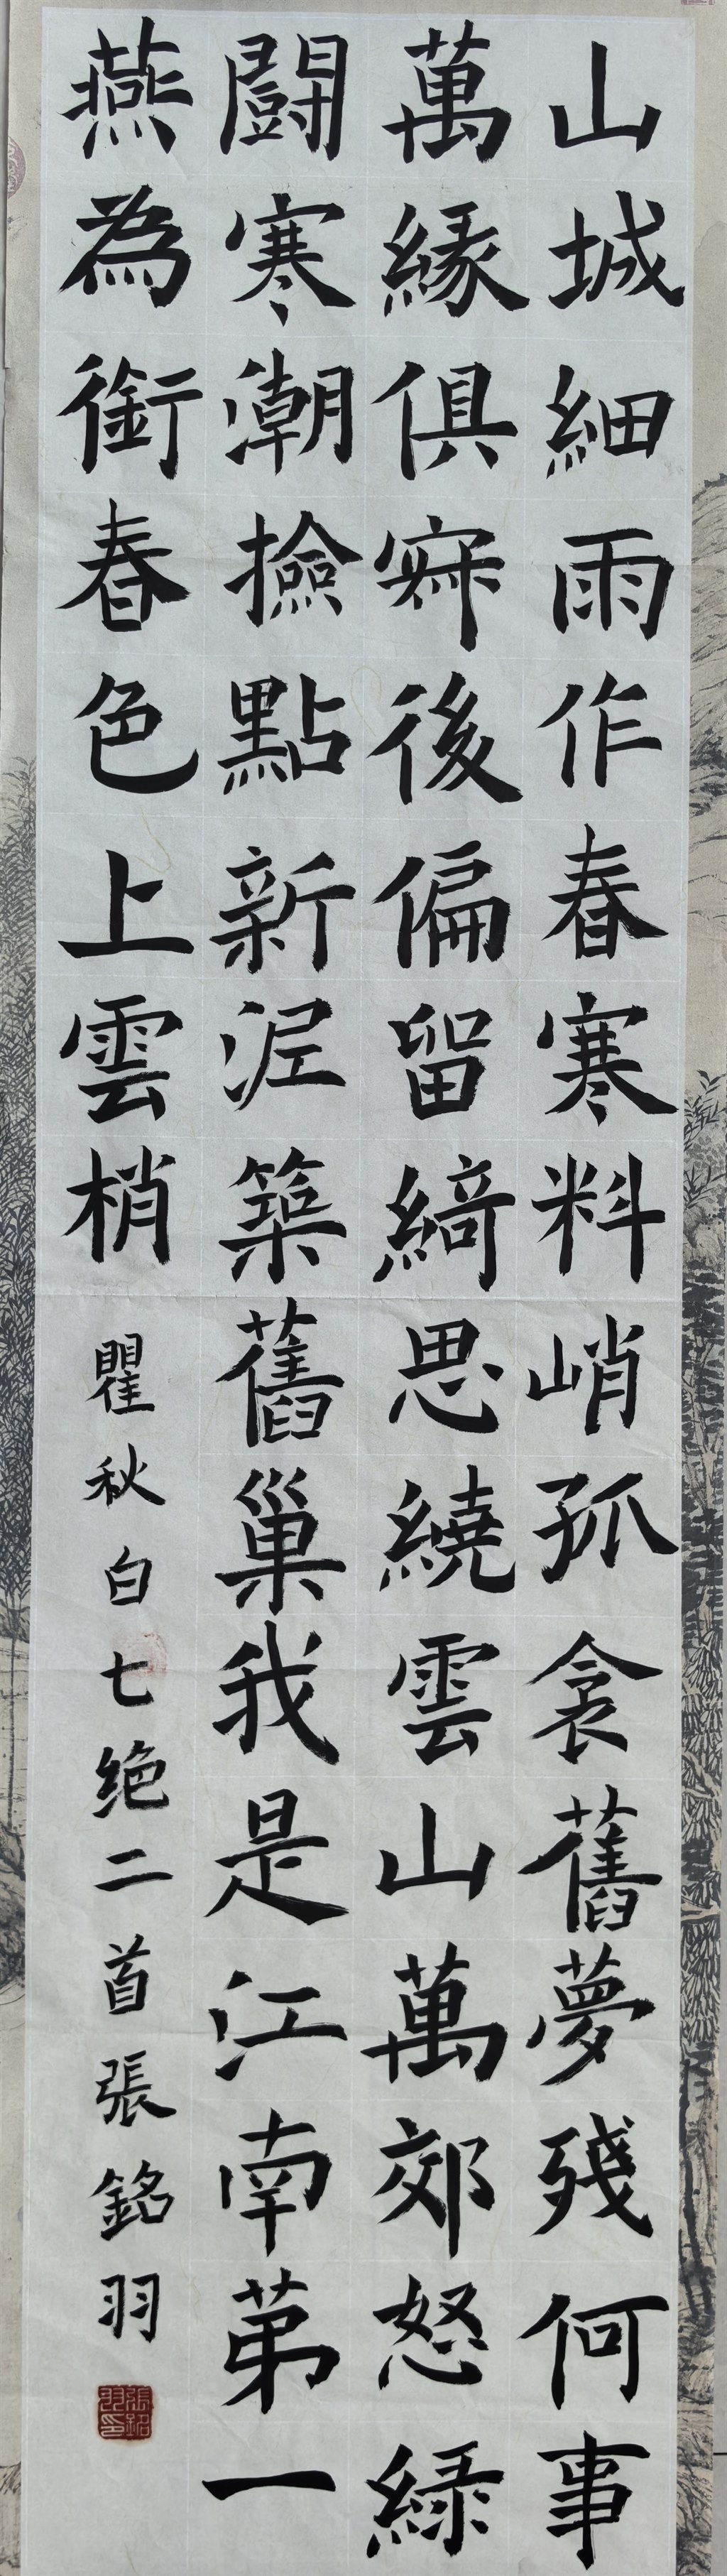 山城細雨作春寒料峭孤衾舊夢殘何事
萬緣俱寂後偏留綺思繞雲山萬郊怒綠
鬪寒潮撿點新泥築舊巢我是江南第一
燕為銜春色上雲梢
瞿秋白七绝二首張銘羽
張銘羽印